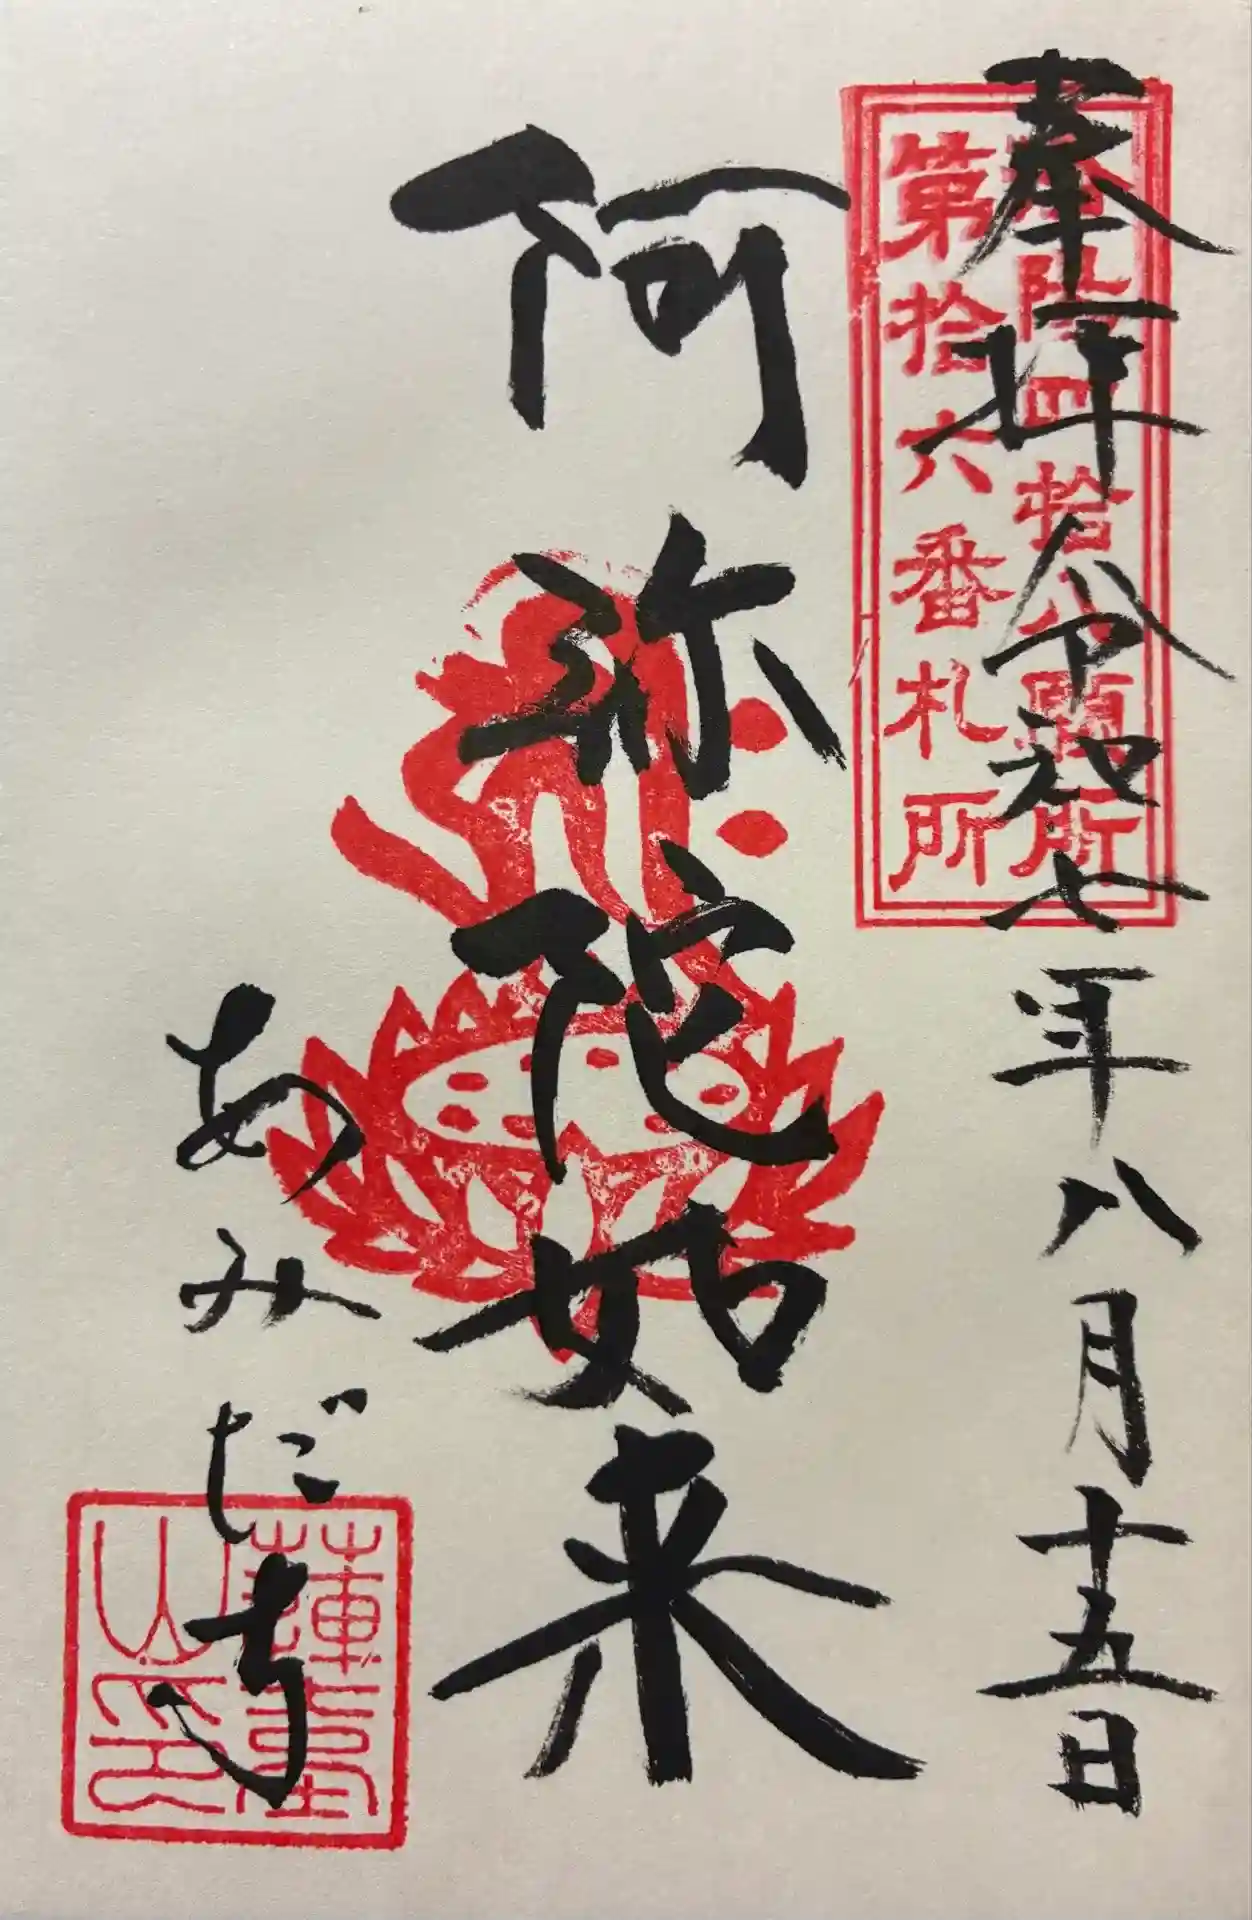 奉拝 令和七年八月十五日
陸四拾八願所
第拾六番札所
阿弥陀如来
あみだ寺
蓮臺
山印